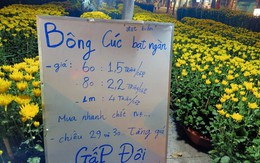 Bông Cúc bạt ngàn
- giá: 60 : 1,5 Triệu/cặp
80 : 2,2 Triệu/cặp
1m : 4 Triệu/cặp
Mua nhanh chiếc
- chiều 29 và 30 Tăng giá
GẤP Đôi